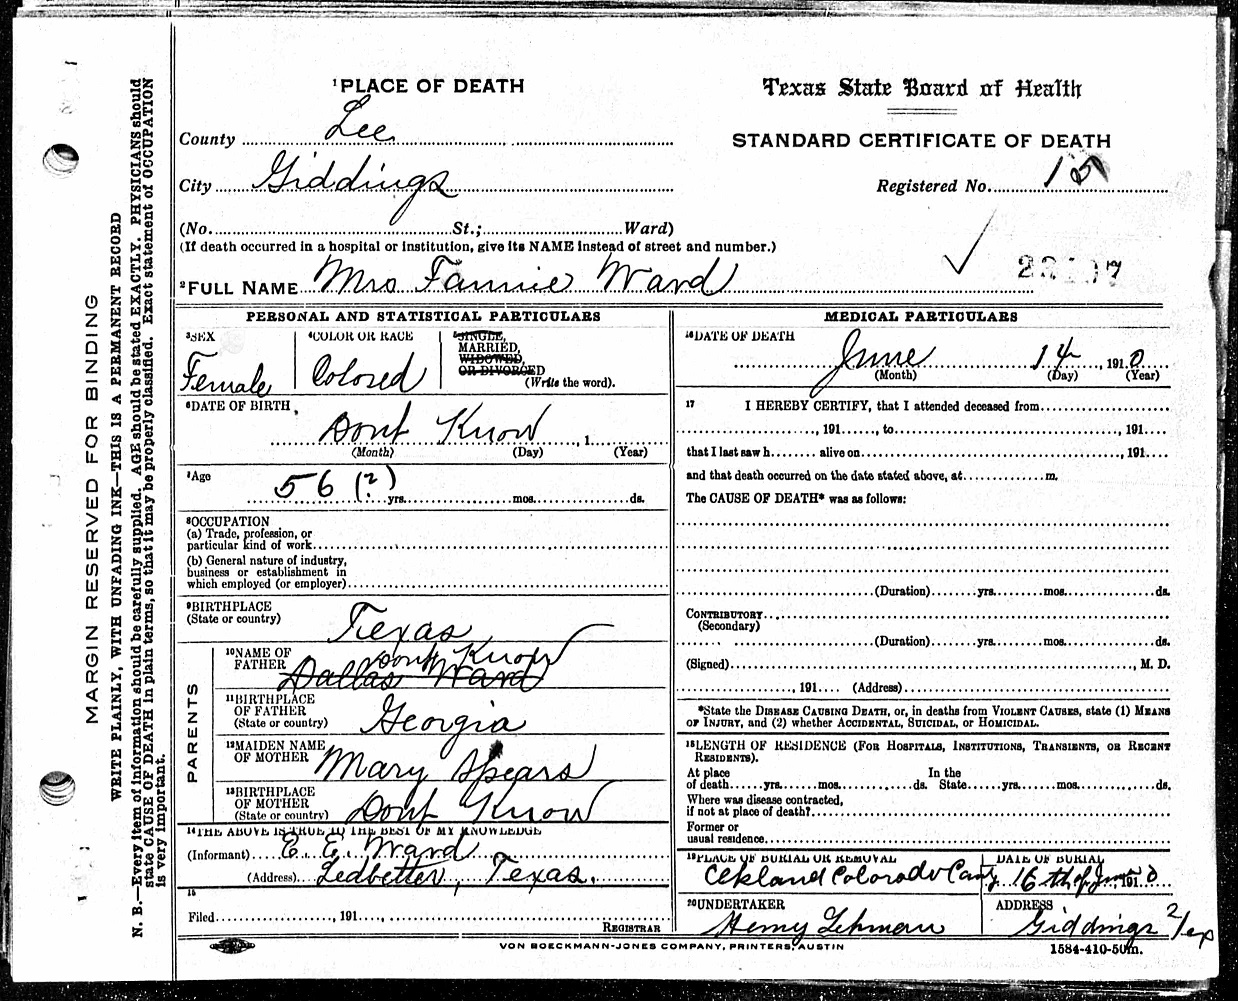 MARGIN RESERVED FOR BINDING
WRITE PLAINLY, WITH UNFADING INK—THIS IS A PERMANENT RECORD
N. B.—Every item of information should be carefully supplied. AGE should be stated EXACTLY. PHYSICIANS should
state CAUSE OF DEATH in plain terms, so that it may be properly classified. Exact statement of OCCUPATION
is very important.
1PLACE OF DEATH
Texas State Board of Health
STANDARD CERTIFICATE OF DEATH
County Lee
City Giddings
Registered No.
(No. St.; Ward)
(If death occurred in a hospital or institution, give its NAME instead of street and number.)
2FULL NAME Mrs Fannie Ward
PERSONAL AND STATISTICAL PARTICULARS
3SEX
Female
4COLOR OR RACE
Colored
5SINGLE,
MARRIED,
WIDOWED,
OR DIVORCED
(Write the word).
6DATE OF BIRTH
Dont Know , 1
(Month) (Day) (Year)
7Age
56 (?) yrs. mos. ds.
8OCCUPATION
(a) Trade, profession, or
particular kind of work
(b) General nature of industry,
business or establishment in
which employed (or employer)
9BIRTHPLACE
(State or country)
Texas
PARENTS
10NAME OF
FATHER
Dont Know
Dallas Ward
11BIRTHPLACE
OF FATHER
(State or country)
Georgia
12MAIDEN NAME
OF MOTHER
Mary Spears
13BIRTHPLACE
OF MOTHER
(State or country)
Dont Know
14THE ABOVE IS TRUE TO THE BEST OF MY KNOWLEDGE
(Informant) E. E. Ward
(Address) Ledbetter, Texas.
15
Filed , 191
REGISTRAR
MEDICAL PARTICULARS
16DATE OF DEATH
June 14, 1910
(Month) (Day) (Year)
17 I HEREBY CERTIFY, that I attended deceased from
, 191 , to , 191
that I last saw h alive on , 191
and that death occurred on the date stated above, at m.
The CAUSE OF DEATH* was as follows:
(Duration) yrs. mos. ds.
CONTRIBUTORY
(Secondary)
(Duration) yrs. mos. ds.
(Signed) , M. D.
, 191 (Address)
*State the DISEASE CAUSING DEATH, or, in deaths from VIOLENT CAUSES, state (1) MEANS
OF INJURY, and (2) whether ACCIDENTAL, SUICIDAL, or HOMICIDAL.
18LENGTH OF RESIDENCE (FOR HOSPITALS, INSTITUTIONS, TRANSIENTS, OR RECENT
RESIDENTS).
At place In the
of death yrs. mos. ds. State yrs. mos. ds.
Where was disease contracted,
if not at place of death?
Former or
usual residence
19PLACE OF BURIAL OR REMOVAL
Colorado
DATE OF BURIAL
16th of June 1910
20UNDERTAKER
Henry Lehman
ADDRESS
Giddings Tex
VON BOECKMANN-JONES COMPANY, PRINTERS, AUSTIN
1584-410-50m.